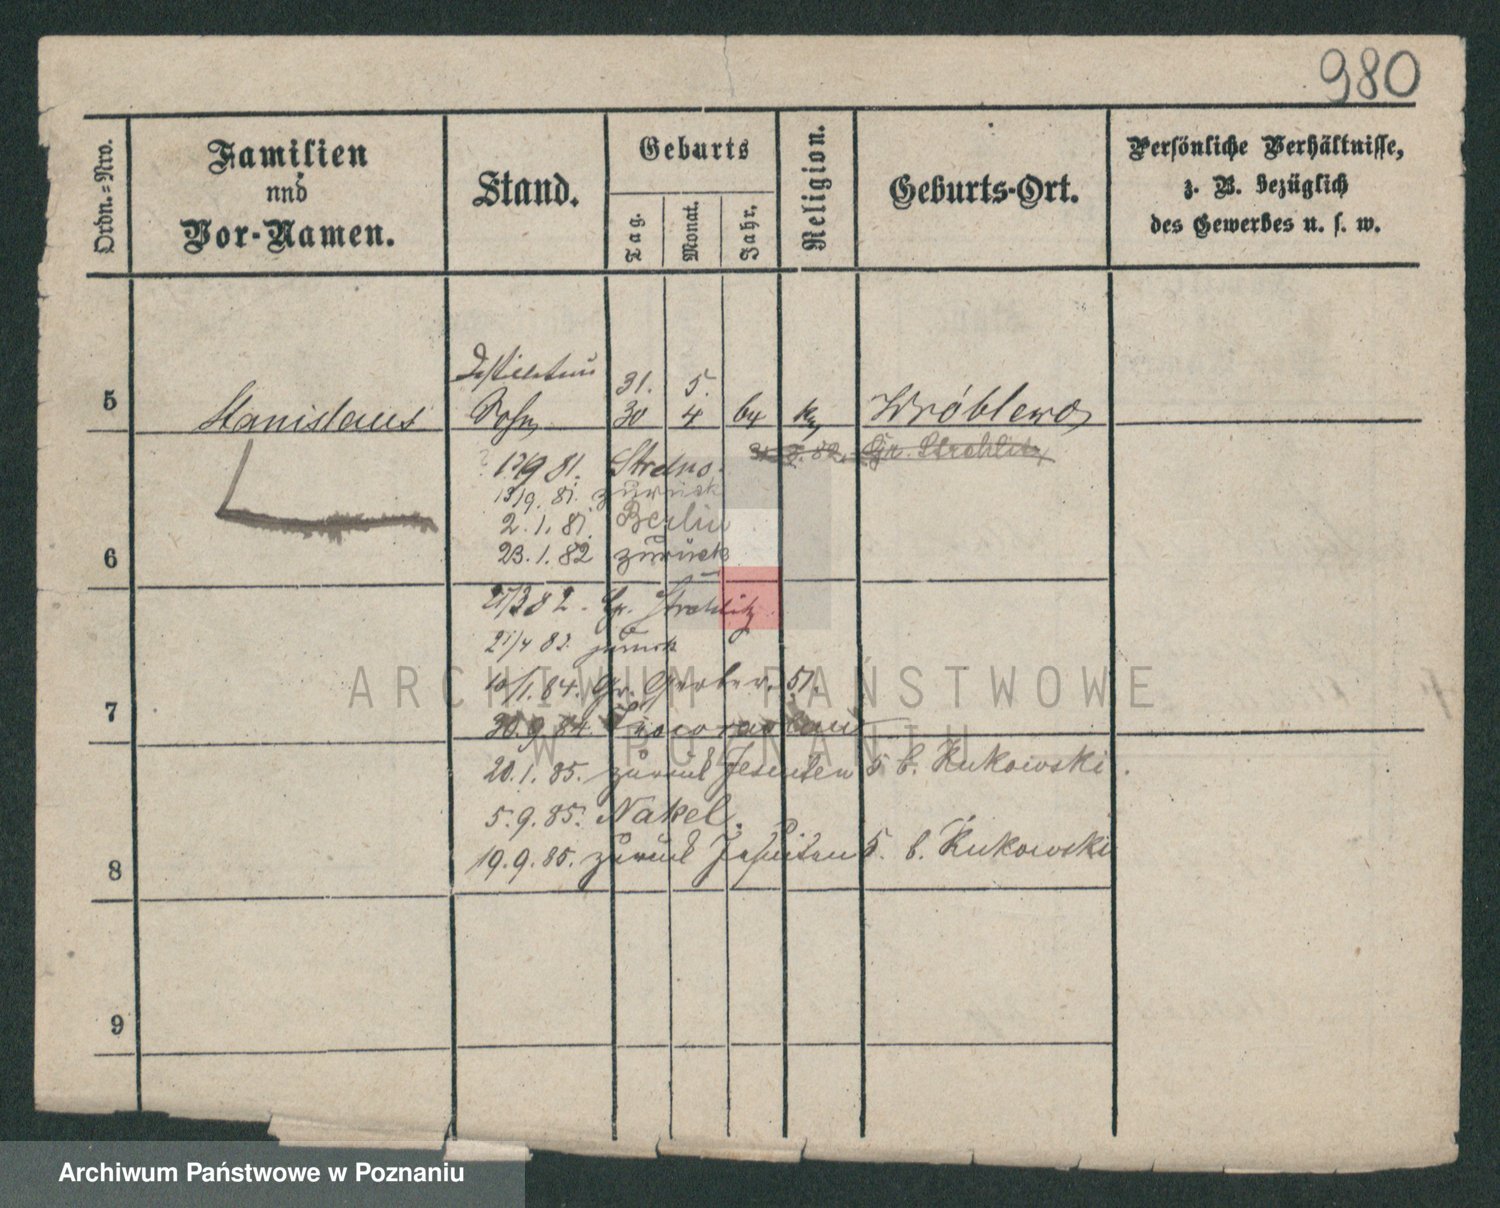 980
Ordn.=Nro.
Familien
und
Vor-Namen.
Stand.
Geburts
Tag.
Monat.
Jahr.
Religion.
Geburts-Ort.
Persönliche Verhältnisse,
z. B. bezüglich
des Gewerbes u. s. w.
31. 5.
5 Stanislaus Sohn 30 4 64 k. Wróblewo
13/9 81. Strelno. 82. Gr. Strehlitz
13/9. 81. zurück
2. 1. 81. Berlin
6 23. 1. 82 zurück
21/3 82. Gr. Strehlitz
21/4 82. zurück
10/1. 84. Gr. Gerber. 51.
7
30. 9. 84.
20. 1. 85. zurück Jesuiten 5 b. Kukowski.
5. 9. 85. Nakel.
8 19. 9. 85. zurück Jesuiten 5. b. Kukowski
9
ARCHIWUM PAŃSTWOWE
W POZNANIU
Archiwum Państwowe w Poznaniu